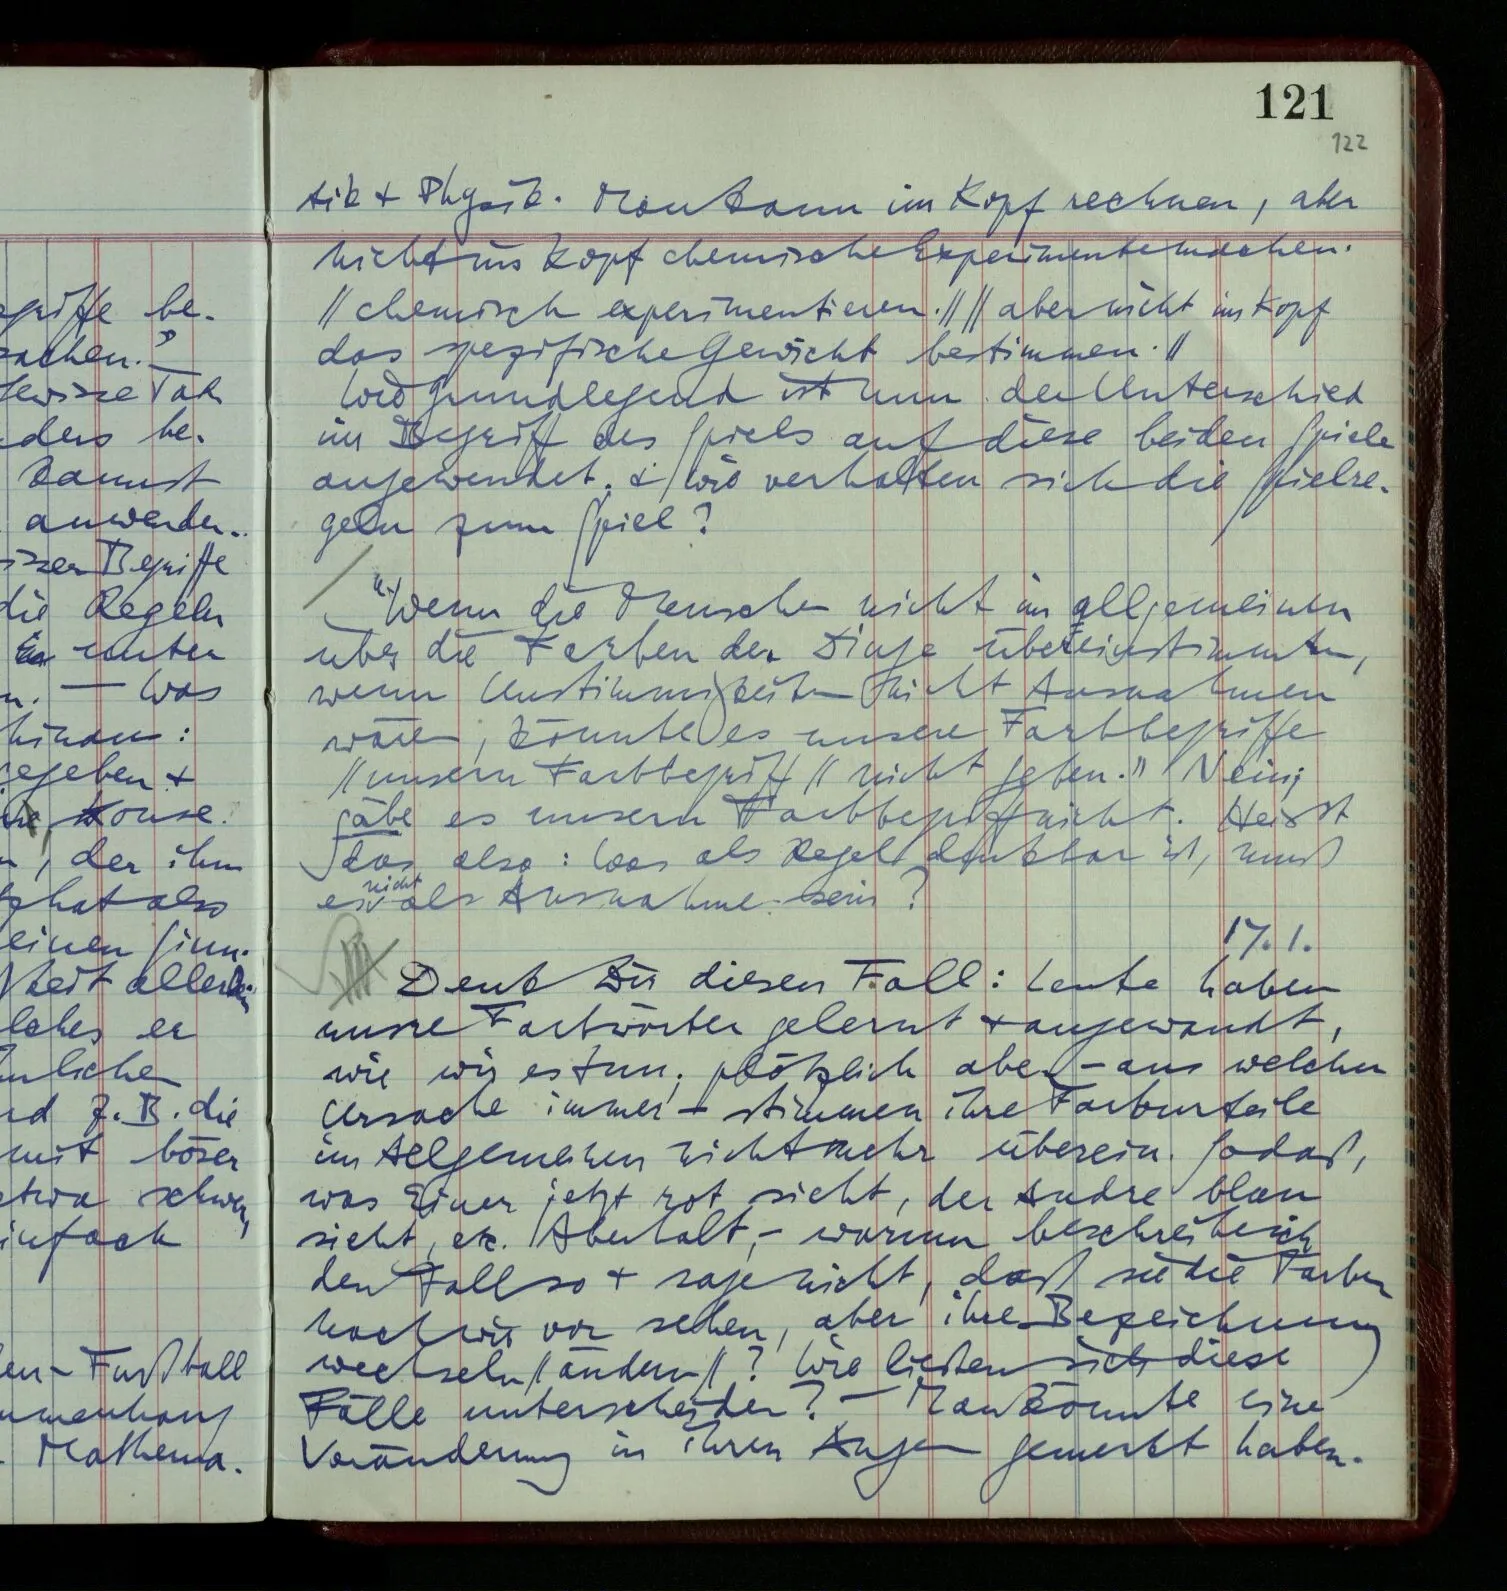 egriffe be-
sachen."
gewisse Tat
ders be-
kannst
anwenden..
isser Begriffe
die Regeln
Er unter
n. — Was
hinaus:
gegeben +
House.
, der ihm
hat also
einen Sinn.
heit allerdin
lches er
hnlicher
nd z.B. die
mit böser
etwa schwer,
infach
en – Fußball
ammenhang
Mathema-
121
122
tik + Physik. Man kann im Kopf rechnen, aber
nicht im Kopf chemische Experimente machen.
//chemisch experimentieren.// //aber nicht im Kopf
das spezifische Gewicht bestimmen.//
Wie grundlegend ist nun der Unterschied
im Begriff des Spiels auf diese beiden Spiele
angewendet. & wie verhalten sich die Spielre-
geln zum Spiel?
"Wenn die Menschen nicht im allgemeinen
über die Farben der Dinge übereinstimmten,
wenn Unstimmigkeiten nicht Ausnahmen
wären, könnte es unsere Farbbegriffe
//unsern Farbbegriff// nicht geben." Nein;
gäbe es unsern Farbbegriff nicht. Heißt
das also: Was als Regel denkbar ist, muß
es nicht als Ausnahme sein?
17.1.
Denk Dir diesen Fall: Leute haben
unsre Farbwörter gelernt + angewandt,
wie wir es tun; plötzlich aber – aus welcher
Ursache immer – stimmen ihre Farburteile
im Allgemeinen nicht mehr überein. Sodaß,
was Einer jetzt rot sieht, der Andre blau
sieht, etc. Aber halt, – warum beschreibe ich
den Fall so + sage nicht, daß sie die Farben
nach wie vor sehen, aber ihre Bezeichnung
wechseln //ändern//? Wie ließen sich diese
Fälle unterscheiden? – Man könnte eine
Veränderung in ihren Augen gemerkt haben.